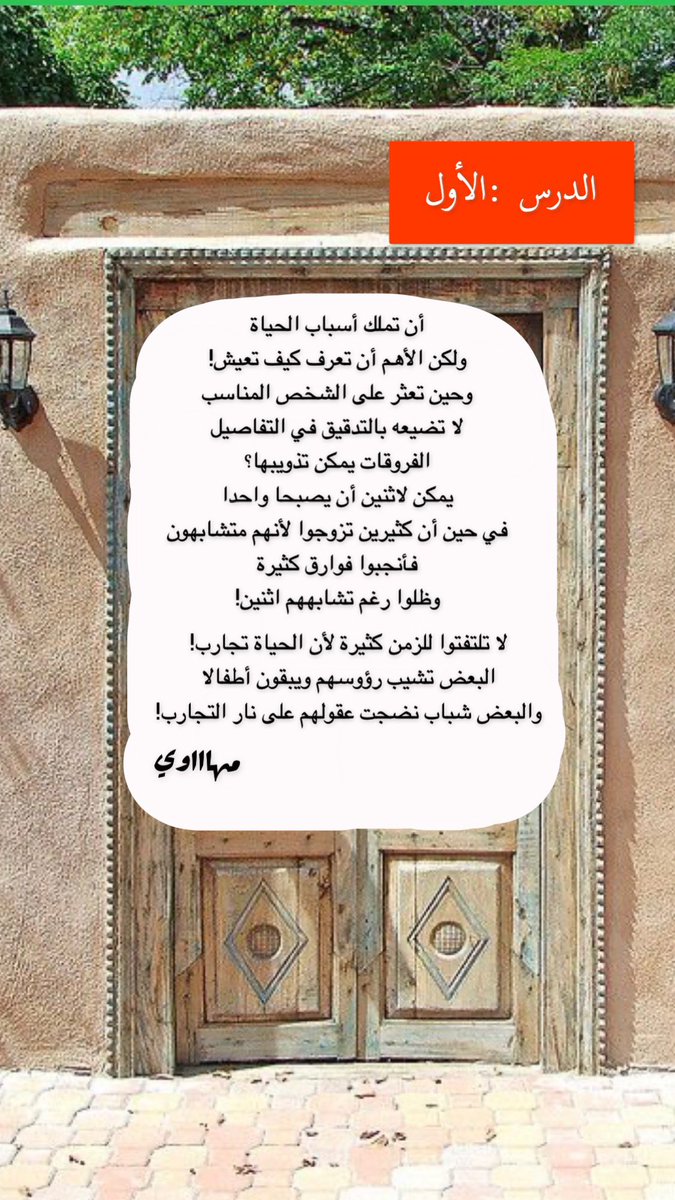 الدرس :الأول
أن تملك أسباب الحياة
ولكن الأهم أن تعرف كيف تعيش!
وحين تعثر على الشخص المناسب
لا تضيعه بالتدقيق في التفاصيل
الفروقات يمكن تذويبها؟
يمكن لاثنين أن يصبحا واحدا
في حين أن كثيرين تزوجوا لأنهم متشابهون
فأنجبوا فوارق كثيرة
وظلوا رغم تشابههم اثنين!
لا تلتفتوا للزمن كثيرة لأن الحياة تجارب!
البعض تشيب رؤوسهم ويبقون أطفالا
والبعض شباب نضجت عقولهم على نار التجارب!
مهاااوي